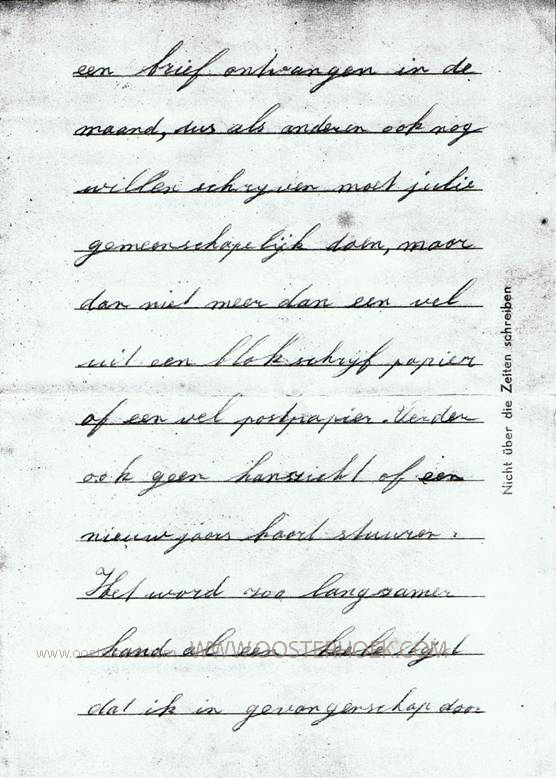 een brief ontvangen in de
maand, dus als anderen ook nog
willen schryven moet julie
gemeenschapelijk doen, maar
dan niet meer dan een vel
uit een blok schrijf papier
of een vel postpapier. Verder
ook geen kansricht of een
nieuwjaars kaart sturen.
Het word zoo langzamer
hand al een heele tijd
dat ik in gevangenschap door
Nicht über die Zeiten schreiben
www.oosterhoek.com
WWW.OOSTERHOEK.COM